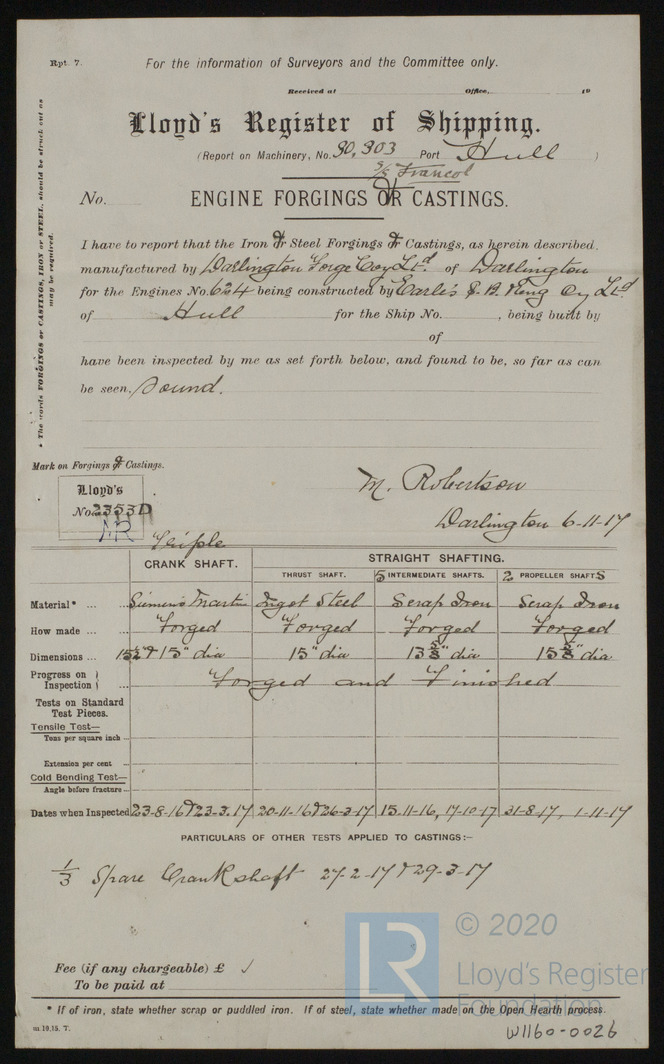 Rpt. 7.
For the information of Surveyors and the Committee only.
Received at Office, 19
Lloyd's Register of Shipping.
(Report on Machinery, No. 30,303 Port Hull )
S/S Francol
No. ENGINE FORGINGS & CASTINGS.
* The words FORGINGS or CASTINGS, IRON or STEEL, should be struck out as may be required.
I have to report that the Iron & Steel Forgings & Castings, as herein described,
manufactured by Darlington Forge Coy Ltd. of Darlington
for the Engines No. 624 being constructed by Earle's S. B. & Eng Cy Ltd.
of Hull for the Ship No. , being built by
of
have been inspected by me as set forth below, and found to be, so far as can
be seen, Sound.
Mark on Forgings & Castings.
Lloyd's
No. 2353D
MR
M. Robertson
Darlington 6-11-17
Triple
CRANK SHAFT.
STRAIGHT SHAFTING.
THRUST SHAFT. 5 INTERMEDIATE SHAFTS. 2 PROPELLER SHAFTS
Material* ... Siemens Martin Ingot Steel Scrap Iron Scrap Iron
How made ... Forged Forged Forged Forged
Dimensions ... 15½" & 15" dia 15" dia 13⅝" dia 15⅝" dia
Progress on Inspection Forged and Finished
Tests on Standard
Test Pieces.
Tensile Test—
Tons per square inch
Extension per cent
Cold Bending Test—
Angle before fracture
Dates when Inspected 23-8-16 & 23-3-17 20-11-16 & 26-3-17 15-11-16, 17-10-17 31-8-17, 1-11-17
PARTICULARS OF OTHER TESTS APPLIED TO CASTINGS:—
1/3 Spare Crankshaft 27-2-17 & 29-3-17
Fee (if any chargeable) £
To be paid at
* If of iron, state whether scrap or puddled iron. If of steel, state whether made on the Open Hearth process.
m.10,15. T.
© 2020
LR
Lloyd's Register
Foundation
W1160-0026